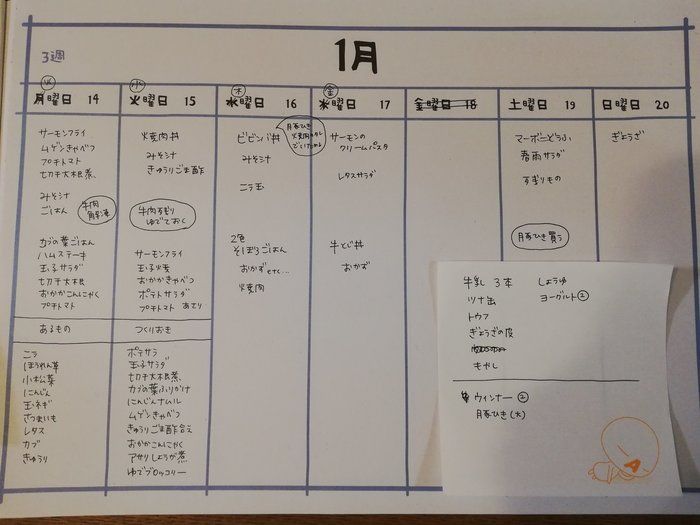 3週
1月
火
月曜日 14
水
火曜日 15
木
水曜日 16
金
木曜日 17
金曜日 18
土曜日 19
日曜日 20
サーモンフライ
ムゲンきゃべつ
プチトマト
七刀干大根煮、
みそ汁
ごはん
牛肉
解凍
カブの葉ごはん
ハムステーキ
玉子サラダ
切干大根
おかかこんにゃく
プチトマト
焼肉丼
みそ汁
きゅうりごま酢
牛肉すぎり
ゆでておく
サーモンフライ
玉子焼
おかかきゃべつ
ポテトサラダ
プチトマト
ビビンバ丼
みそ汁
ニラ玉
2色
そぼろごはん
おかずetc...
焼肉
サーモンの
クリームパスタ
レタスサラダ
牛とじ丼
おかず
マーボーどうふ
春雨サラダ
ぎょうざ
あるもの
ニラ
ほうれん草
小松菜
にんじん
玉ネギ
さつまいも
レタス
カブ
きゅうり
つくりおき
ポテサラ
玉子サラダ
切干大根煮、
カブの葉ふりかけ
にんじんナムル
ムゲンきゃべつ
きゅうりごま酢合え
おかかこんにゃく
アサリしょうが煮
ゆでブロッコリー
牛乳 3本
ツナ缶
トウフ
ぎょうざの皮
もやし
しょうゆ
ヨーグルト②
ウィンナー②